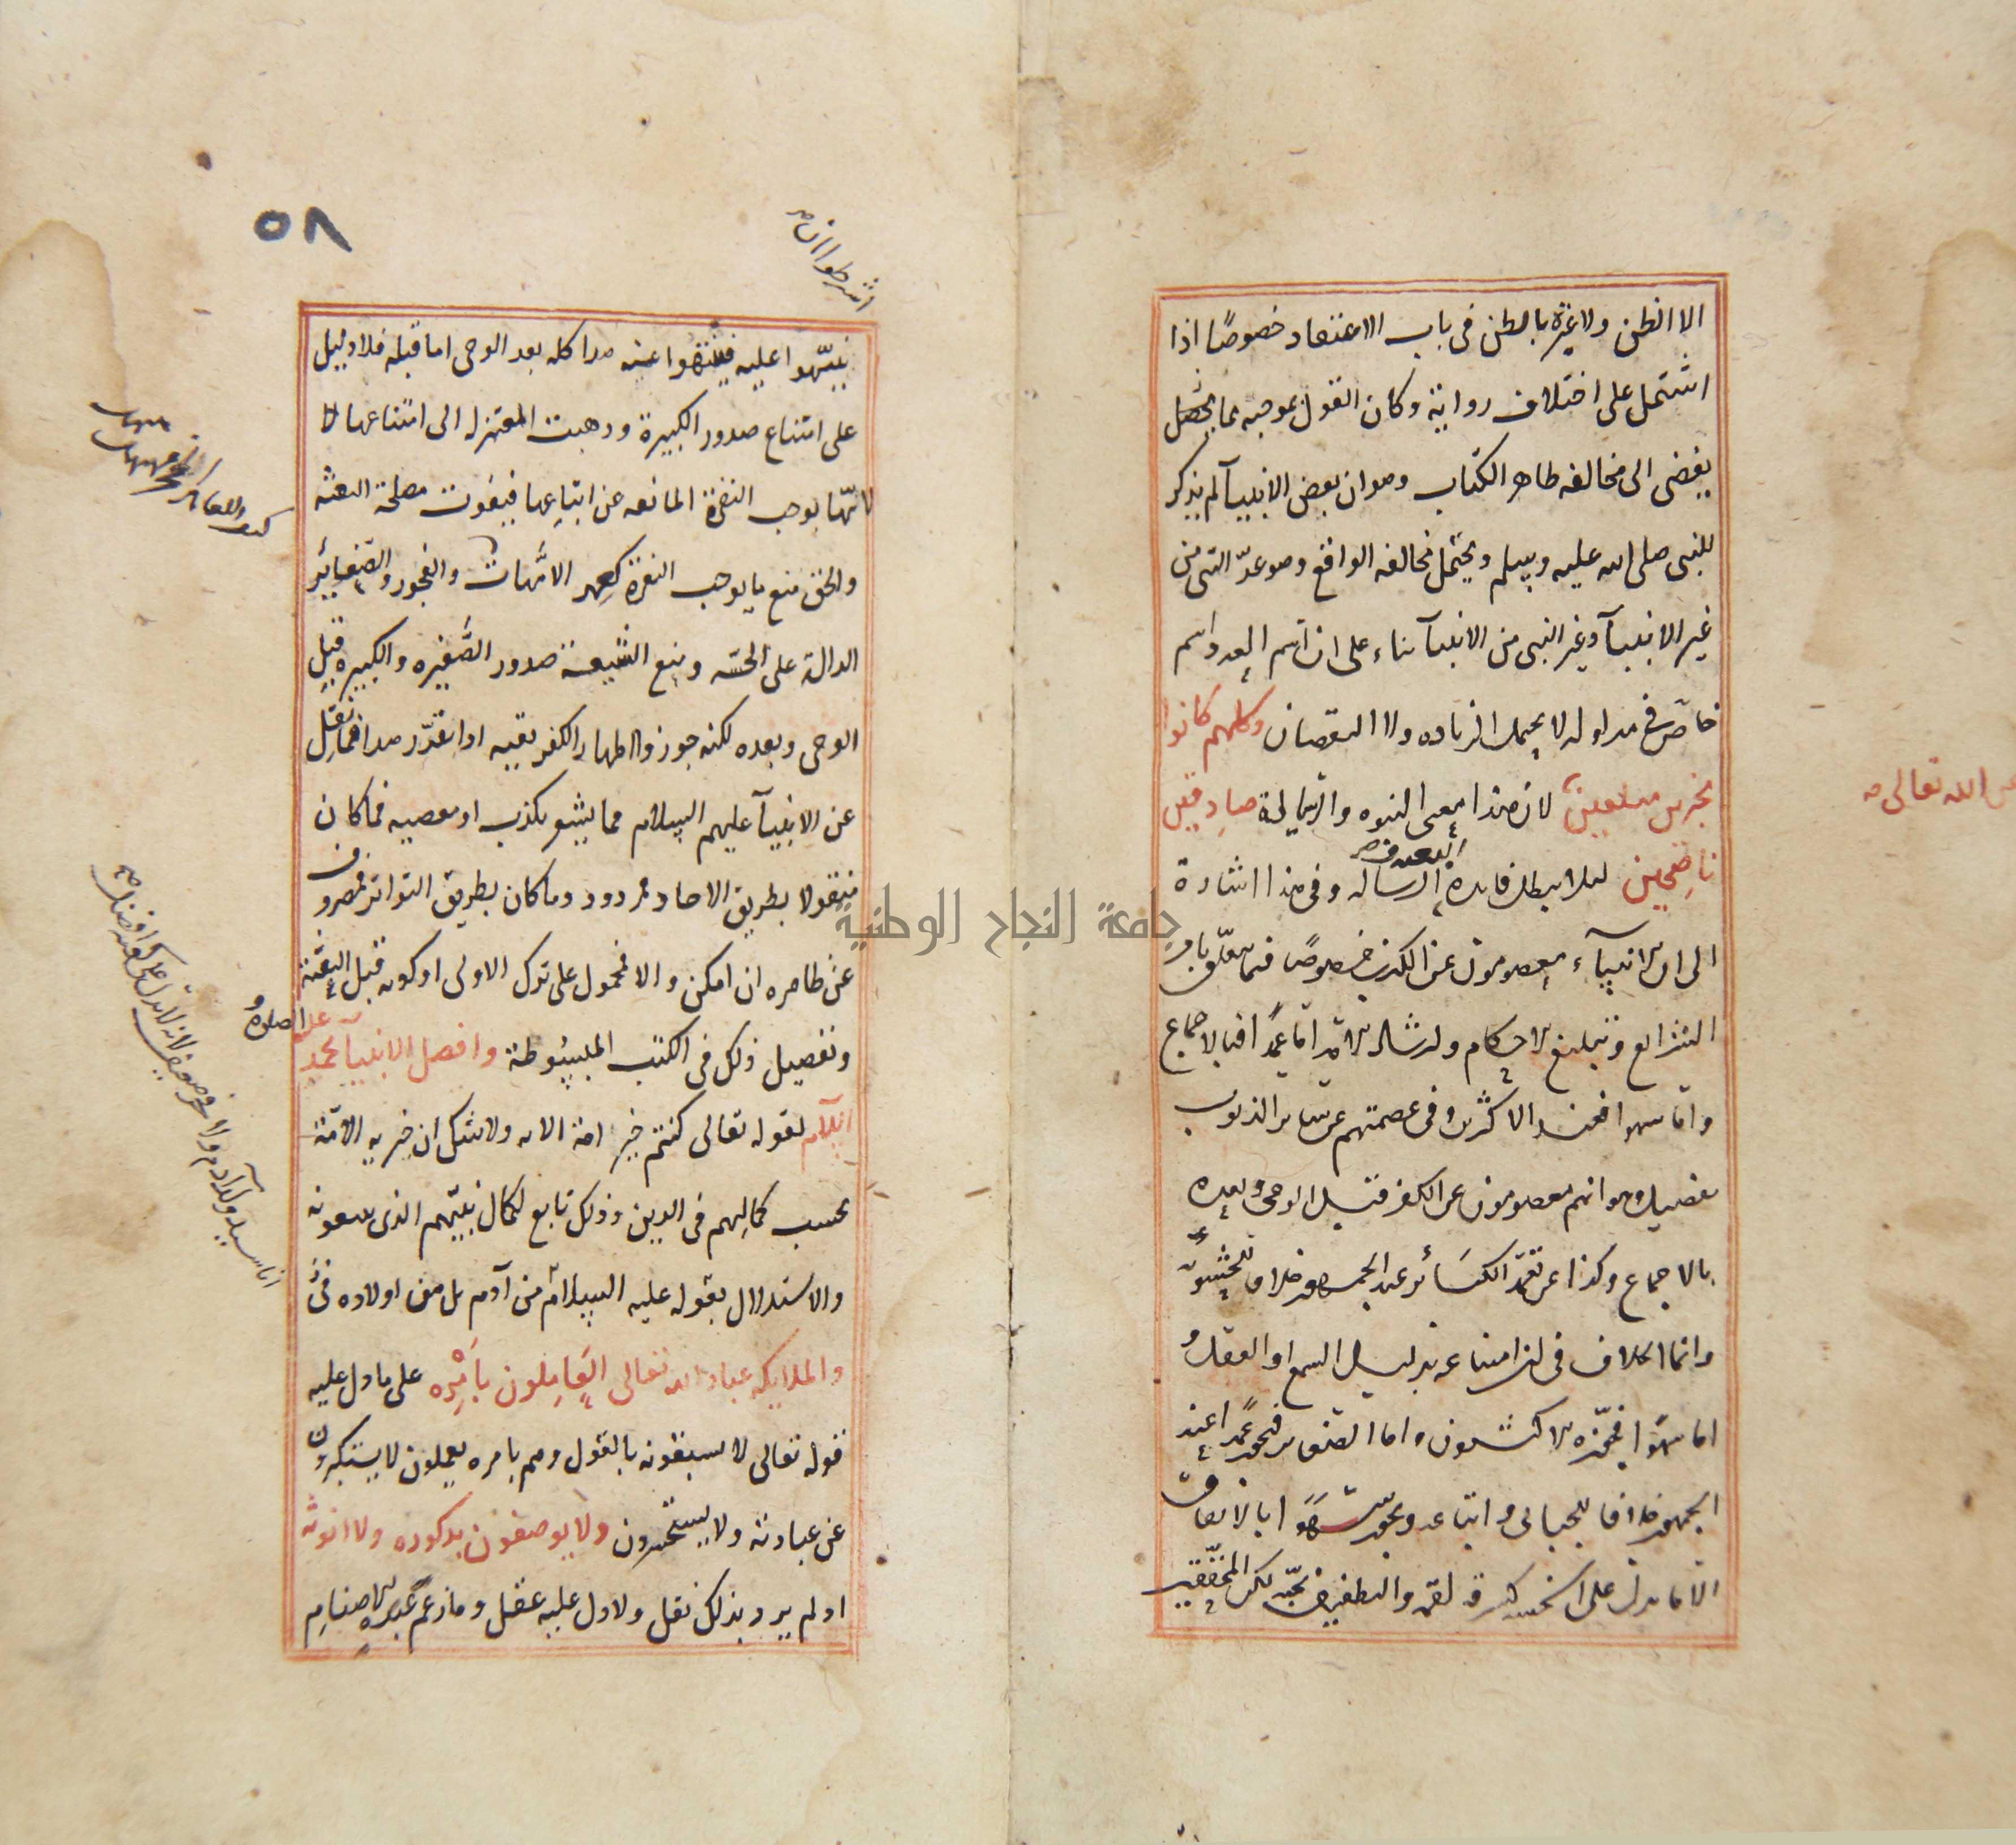 الا الظن ولا عبرة بالظن فى باب الاعتقاد خصوصًا اذا
اشتمل على اختلاف رواية وكان القول بموجبه مما
يفضى الى مخالفه ظاهر الكتاب وهو ان بعض الانبيآ لم يذكر
للنبى صلى الله عليه وسلم ويحتمل مخالفه الواقع وهو عدّ النبى من
غير الانبيآ وغير النبى من الانبيآ بناء على ان اسم العدد اسم
خاصّ فى مدلوله لا يحتمل الزياده ولا النقصان وكلهم كانوا
مخبرين مبلغين لان هذا معنى النبوه والرسالة صادقين
عن الله تعالى صح
ناصحين لئلا يبطل فايدة البعثه و صح الرساله وفى هذا اشارة
الى ان الانبيآء معصومون عن الكذب خصوصًا فيما يتعلق بامر
الشرايع وتبليغ الاحكام وارشاد الامة اما عمدًا فبالاجماع
واما سهوا فعند الاكثرين وفى عصمتهم عن ساير الذنوب
تفصيل وهو انهم معصومون عن الكفر قبل الوحى وبعده
بالاجماع وكذا عن تعمّد الكبائر عند الجمهور خلافا للحشويّة
وانما الخلاف فى ان امتناعه بدليل السمع او العقل و
اما سهوًا فجوّزه الاكثرون واما الصغاير فيجوز عمدًا عند
الجمهور خلافا للجبائى واتباعه ويجوز سهوًا بالاتفاق
الا ما يدل على الخسه كسرقه لقمه والتطفيف بحبّه لكن المحققين
٥٨
اشترطوا ان صح
ينبّهوا عليه فينتهوا عنه هذا كله بعد الوحى اما قبله فلا دليل
على امتناع صدور الكبيرة وذهبت المعتزله الى امتناعها لا
لانّها يوجب النفرة المانعه عن اتباعها فيفوت مصلحة البعثه
والحق منع ما يوجب النفرة كعهر الامّهات والفجور والصّغاير
الدالة على الخسّه ومنع الشيعة صدور الصّغيره والكبيره قبل
الوحى وبعده لكنه جوزوا اظهار الكفر تقيه اذا تقرّر هذا فما نقل
عن الانبيآ عليهم السلام مما يشعر بكذب او معصيه فما كان
منقولا بطريق الاحاد فمردود وما كان بطريق التواتر فمصروف
عن ظاهره ان امكن والا فمحمول على ترك الاولى او كونه قبل البعثة
وتفصيل ذلك فى الكتب المبسوطة وافضل الانبيآ محمد عليه الصلوة و
السلام لقوله تعالى كنتم خير امة الايه ولا شك ان خيرية الامّة
بحسب كمالهم فى الدين وذلك تابع لكمال نبيّهم الذى يتبعونه
والاستدلال بقوله عليه السلام من آدم بل من اولاده
انا سيد ولد آدم ولا فخر ضعيف لانه لا يدل على كونه افضل صح
والملايكه عباد الله تعالى العَامِلون بأمْرِه على ما دل عليه
قوله تعالى لا يسبقونه بالقول وهم بامره يعملون لا يستكبرون
عن عبادته ولا يستحسرون ولا يوصفون بذكوره ولا انوثه
اذ لم يرد بذلك نقل ولا دل عليه عقل وما زعم عبدة الاصنام
جامعة النجاح الوطنية